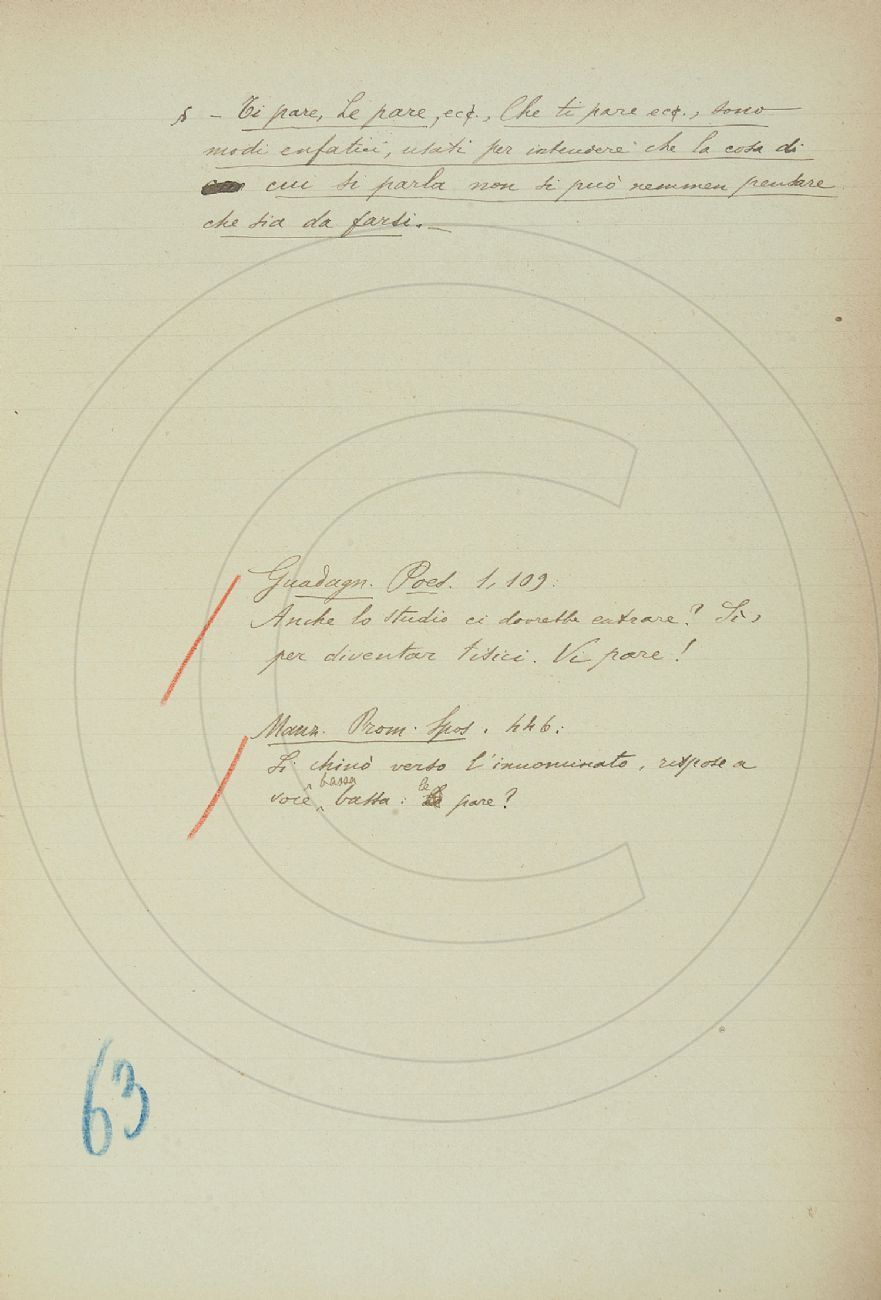 § - Ti pare, Le pare, ecc., Che ti pare ecc., sono
modi enfatici, usati per intendere che la cosa di
cui si parla non si può nemmen pensare
che sia da farsi. -
Guadagn. Poes. 1, 109:
Anche lo studio ci dovrebbe entrare? Sì,
per diventar tisici. Vi pare!
Manz. Prom. Spos. 446:
Si chinò verso l'innominato, rispose a
bassa le
voce bassa: pare?
63